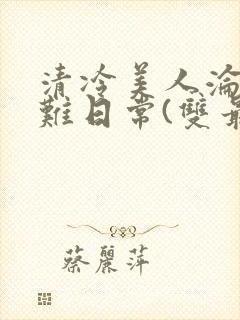 清冷美人淪
難日常(雙
蔡麗萍